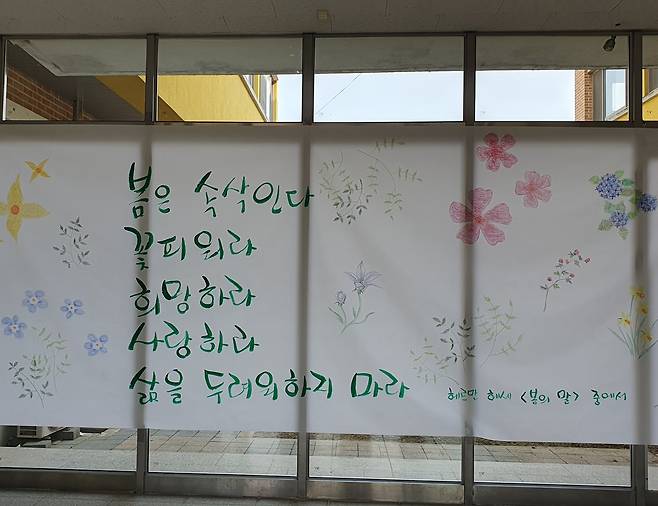 봄은 속삭인다
꽃피워라
희망하라
사랑하라
삶을 두려워하지 마라
헤르만 헤세 <봄의 말> 중에서